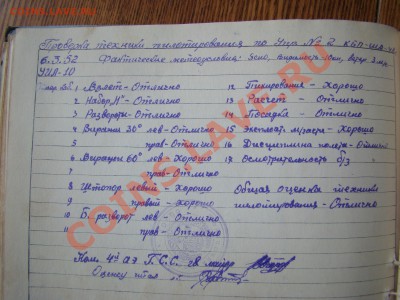 Проверка техники пилотирования по Упр № 2 КБП-ИА-
6.X.52 Фактические метеоусловия: ясно, видимость
УИЛ-10
1 Взлет - Отлично
2 Набор "Н" - Отлично
3 Развороты - Отлично
4 Виражи 30° лев - Отлично
5 прав - Отлично
6 Виражи 60° лев - Хорошо
7 прав - Отлично
8 Штопор левый - Хорошо
9 правый - Хорошо
10 Б. разворот лев - Отлично
11 прав - Отлично
12 Пикирование - Хорошо
13 Расчет - Отлично
14 Посадка - Отлично
15 Эксплоат. м/части - Хорошо
16 Дисциплина полета - Отлично
18 Осмотрительность б/з
Общая оценка техники
пилотирования - Отлично
Ком. 4й аэ Г.С.С. гв майор
COINSS.RU